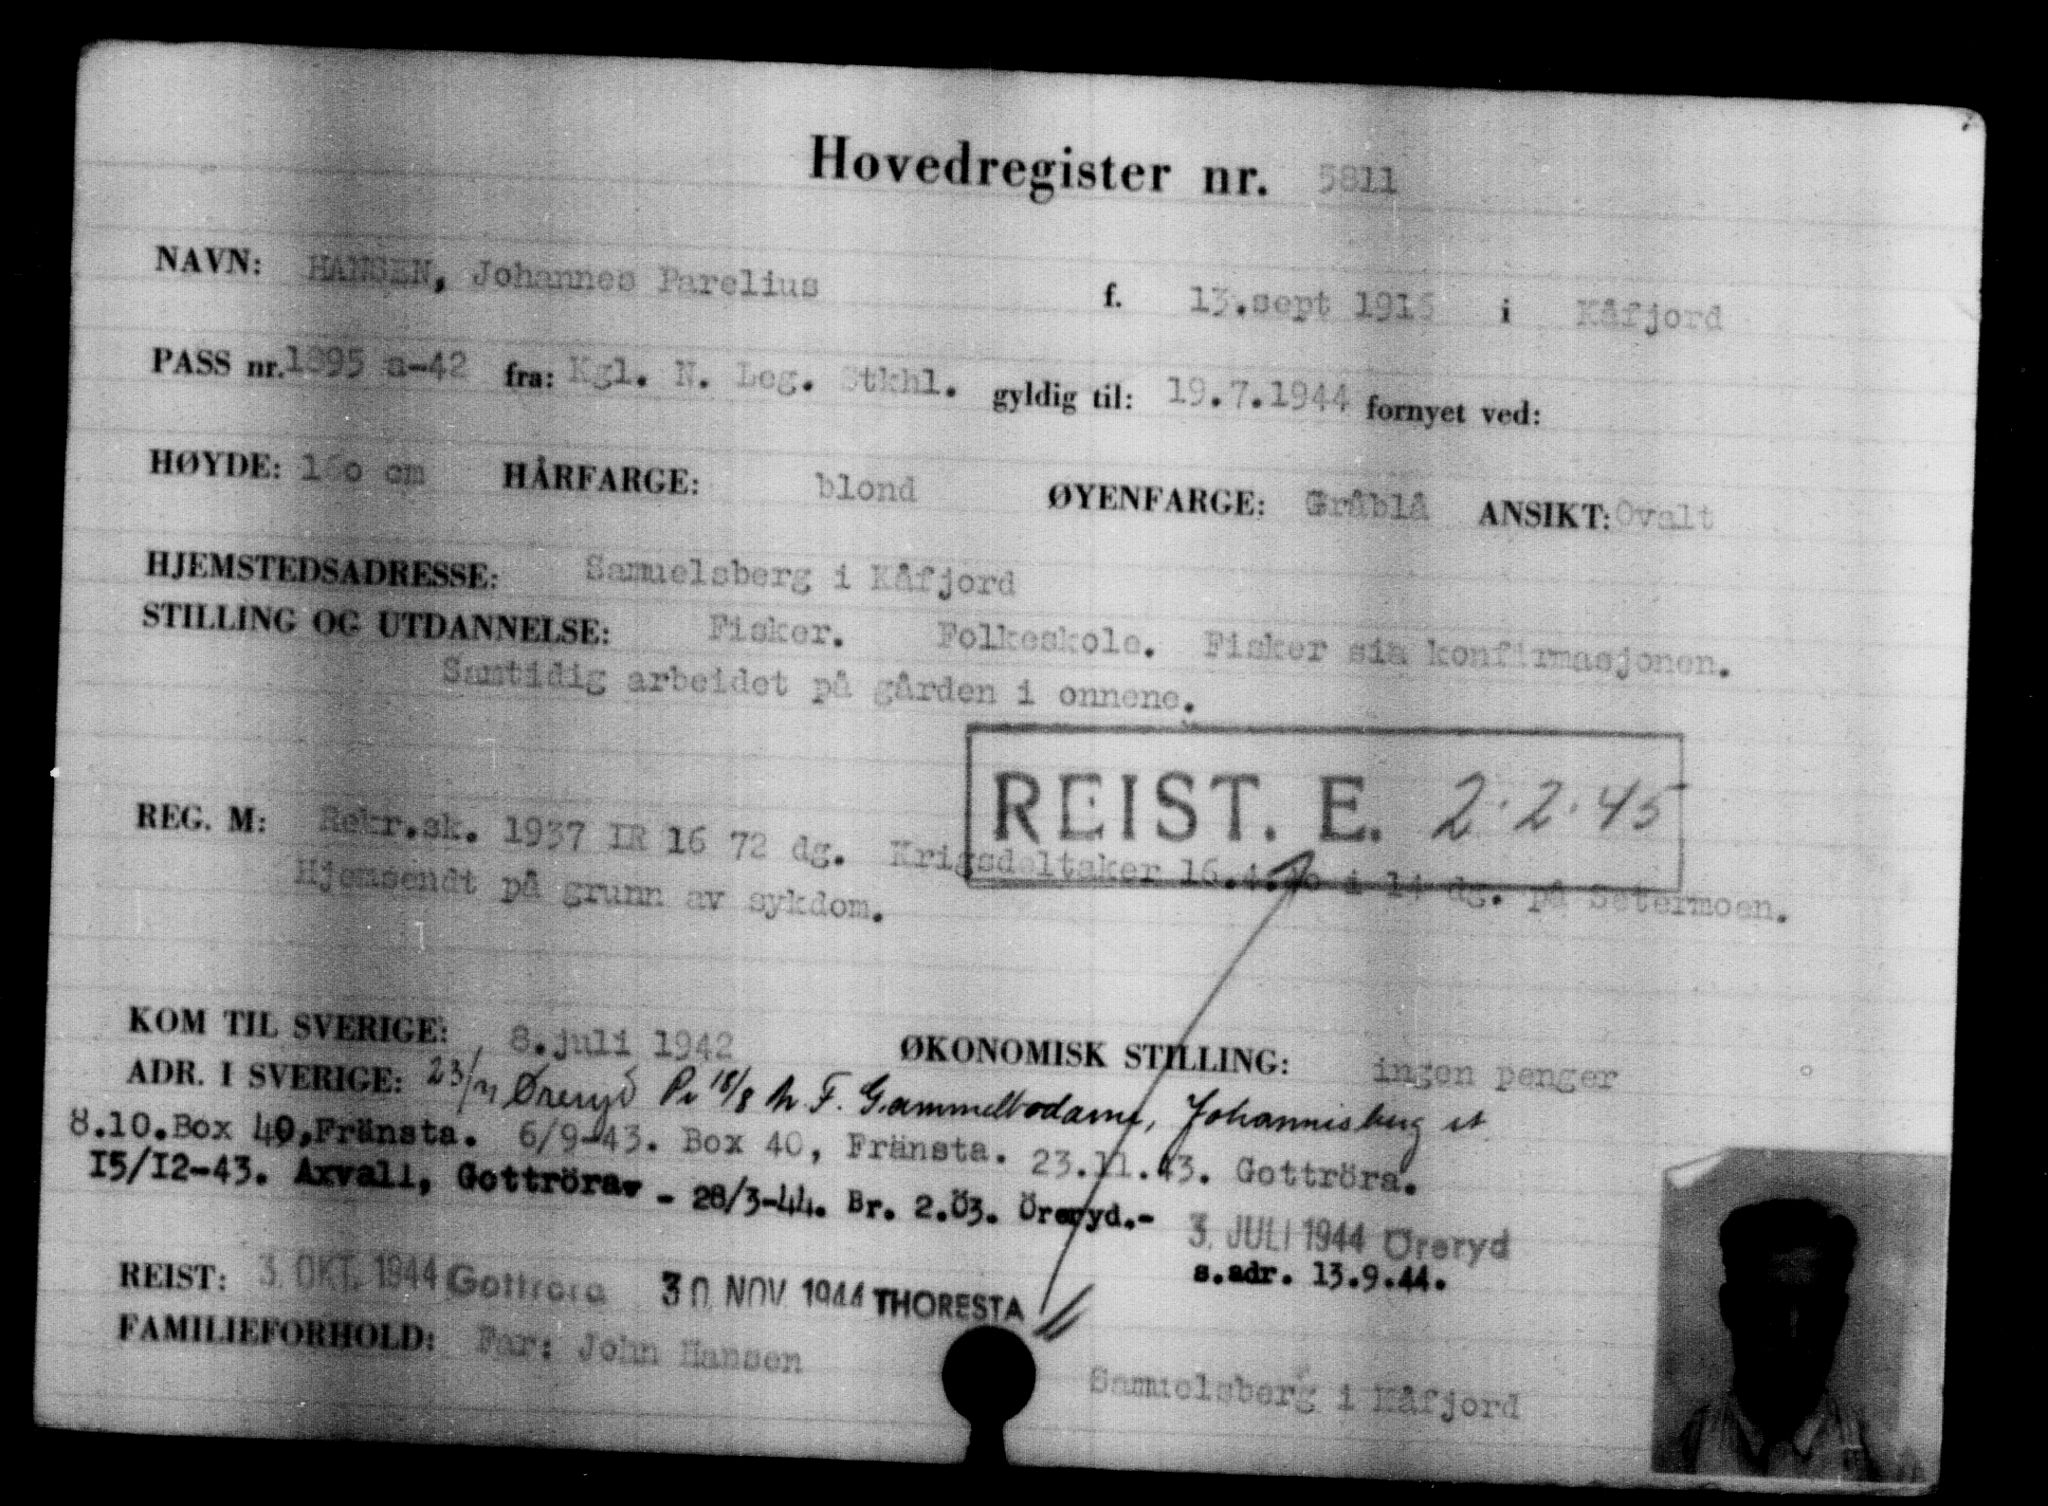 Hovedregister nr. 5811
NAVN: HANSEN, Johannes Parelius f. 13.sept 1915 i Kåfjord
PASS nr. 1895 a-42 fra: Kgl. N. Leg. Stkhl. gyldig til: 19.7.1944 fornyet ved:
HØYDE: 160 cm HÅRFARGE: blond ØYENFARGE: Gråblå ANSIKT: Ovalt
HJEMSTEDSADRESSE: Samuelsberg i Kåfjord
STILLING OG UTDANNELSE: Fisker. Folkeskole. Fisker sia konfirmasjonen.
Samtidig arbeidet på gården i onnene.
REIST. E. 2.2.45
REG. M: Rekr.sk. 1937 IR 16 72 dg. Krigsdeltaker 16.4.40 i 14 dg. på Setermoen.
Hjemsendt på grunn av sykdom.
KOM TIL SVERIGE: 8.juli 1942 ØKONOMISK STILLING: ingen penger
ADR. I SVERIGE: 23/7 Øreryd 18/8 F. Gammelbodarne, Johannisberg
8.10.Box 40,Fränsta. 6/9-43. Box 40, Fränsta. 23.11.43. Gottröra.
15/12-43. Axvall, Gottröra. - 28/3-44. Br. 2.Ö3. Öreryd.-
3. JULI 1944 Öreryd
s.adr. 13.9.44.
REIST: 3. OKT. 1944 Gottröra 30 NOV 1944 THORESTA
FAMILIEFORHOLD: Far: John Hansen Samuelsberg i Kåfjord